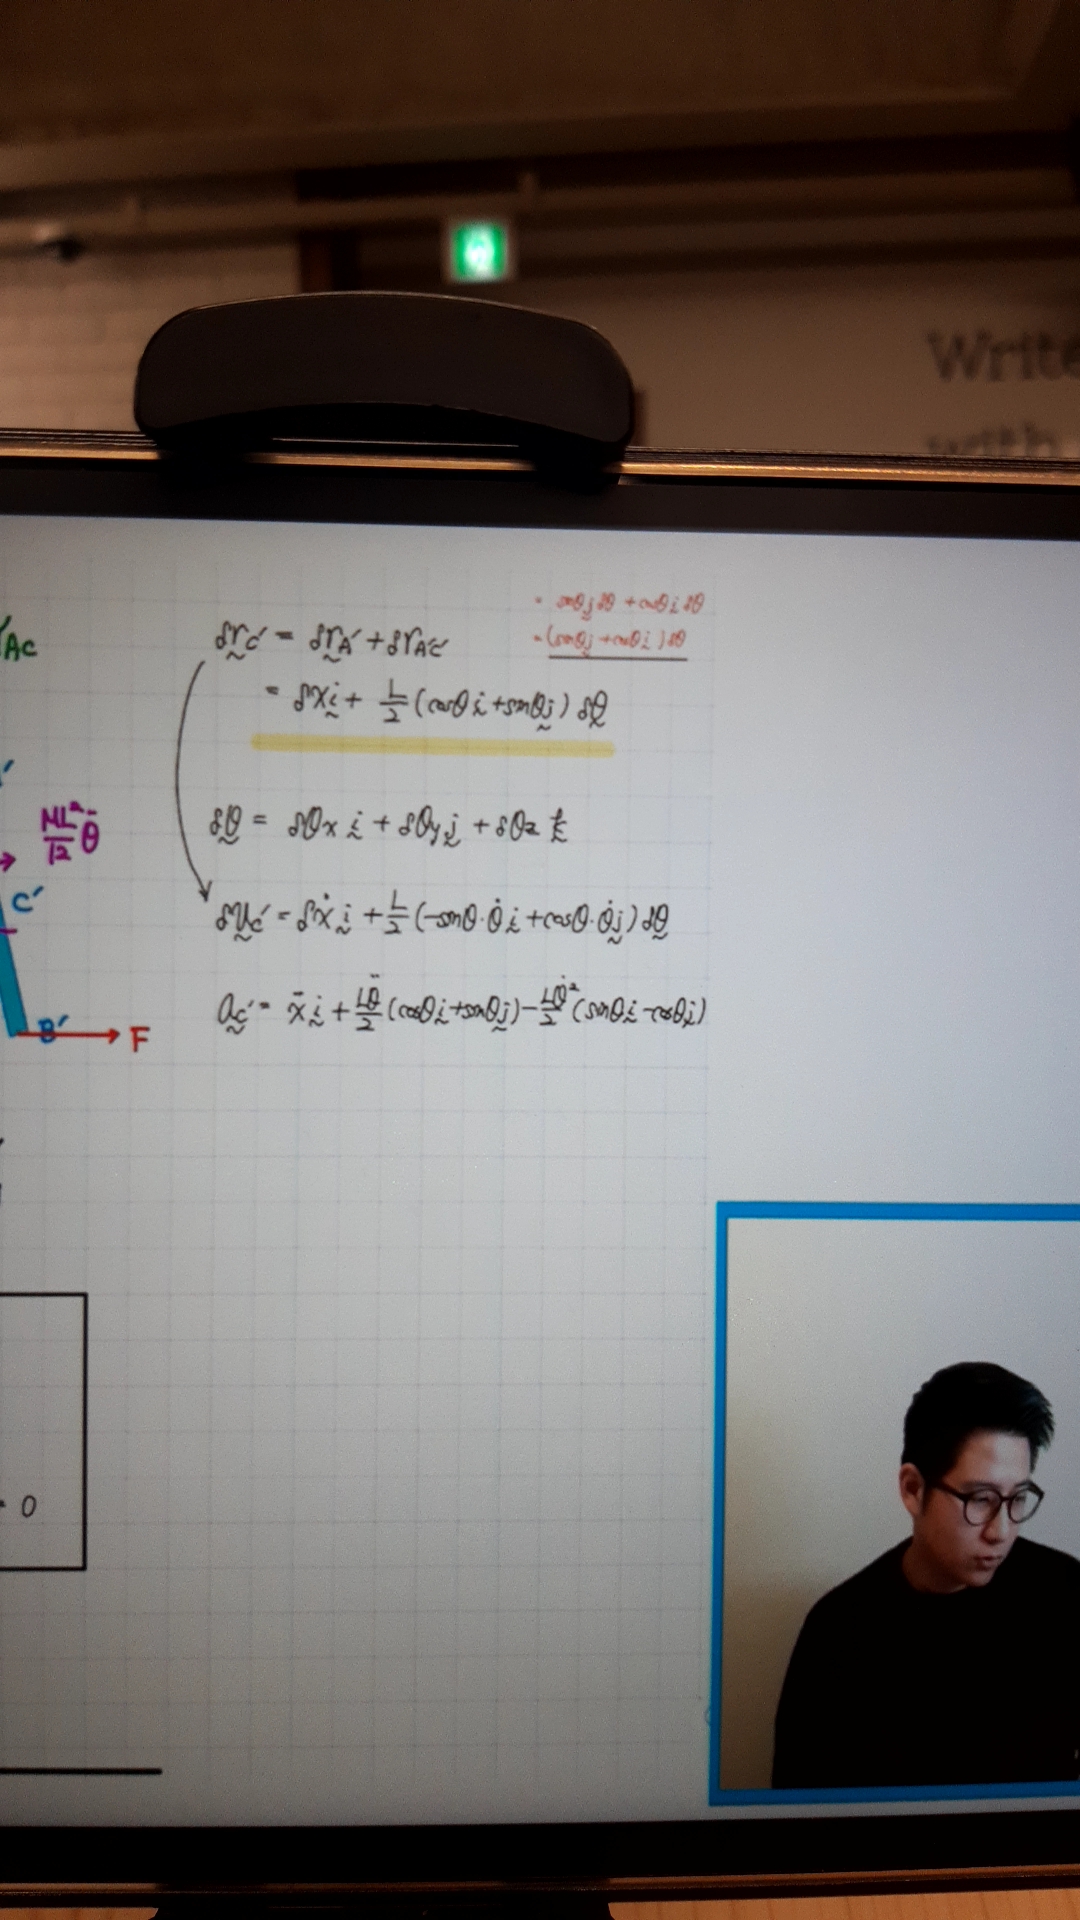 Write
with
r_AC
= sinθj δθ + cosθi δθ
= (sinθj + cosθi) δθ
δr_C' = δr_A' + δr_A'C'
= δx i + L/2 (cosθ i + sinθ j) δθ
ML²/12 θ̈
δθ = δθx i + δθy j + δθz k
C'
δv_C' = δẋ i + L/2 (-sinθ·θ̇ i + cosθ·θ̇ j) δθ
a_C' = ẍ i + Lθ̈/2 (cosθ i + sinθ j) - Lθ̇²/2 (sinθ i - cosθ j)
B'
F
0